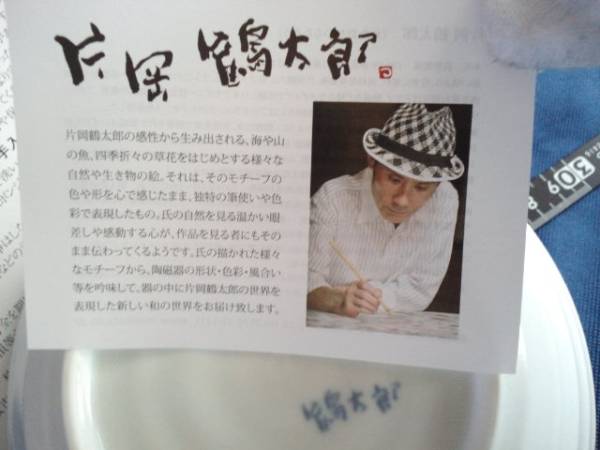 片岡 鶴太郎
片岡鶴太郎の感性から生み出される、海や山
の魚、四季折々の草花をはじめとする様々な
自然や生き物の絵。それは、そのモチーフの
色や形を心で感じたまま、独特の筆使いや色
彩で表現したもの。氏の自然を見る温かい眼
差しや感動する心が、作品を見る者にもその
まま伝わってくるようです。氏の描かれた様々
なモチーフから、陶磁器の形状・色彩・風合い
等を吟味して、器の中に片岡鶴太郎の世界を
表現した新しい和の世界をお届け致します。
鶴太郎
309